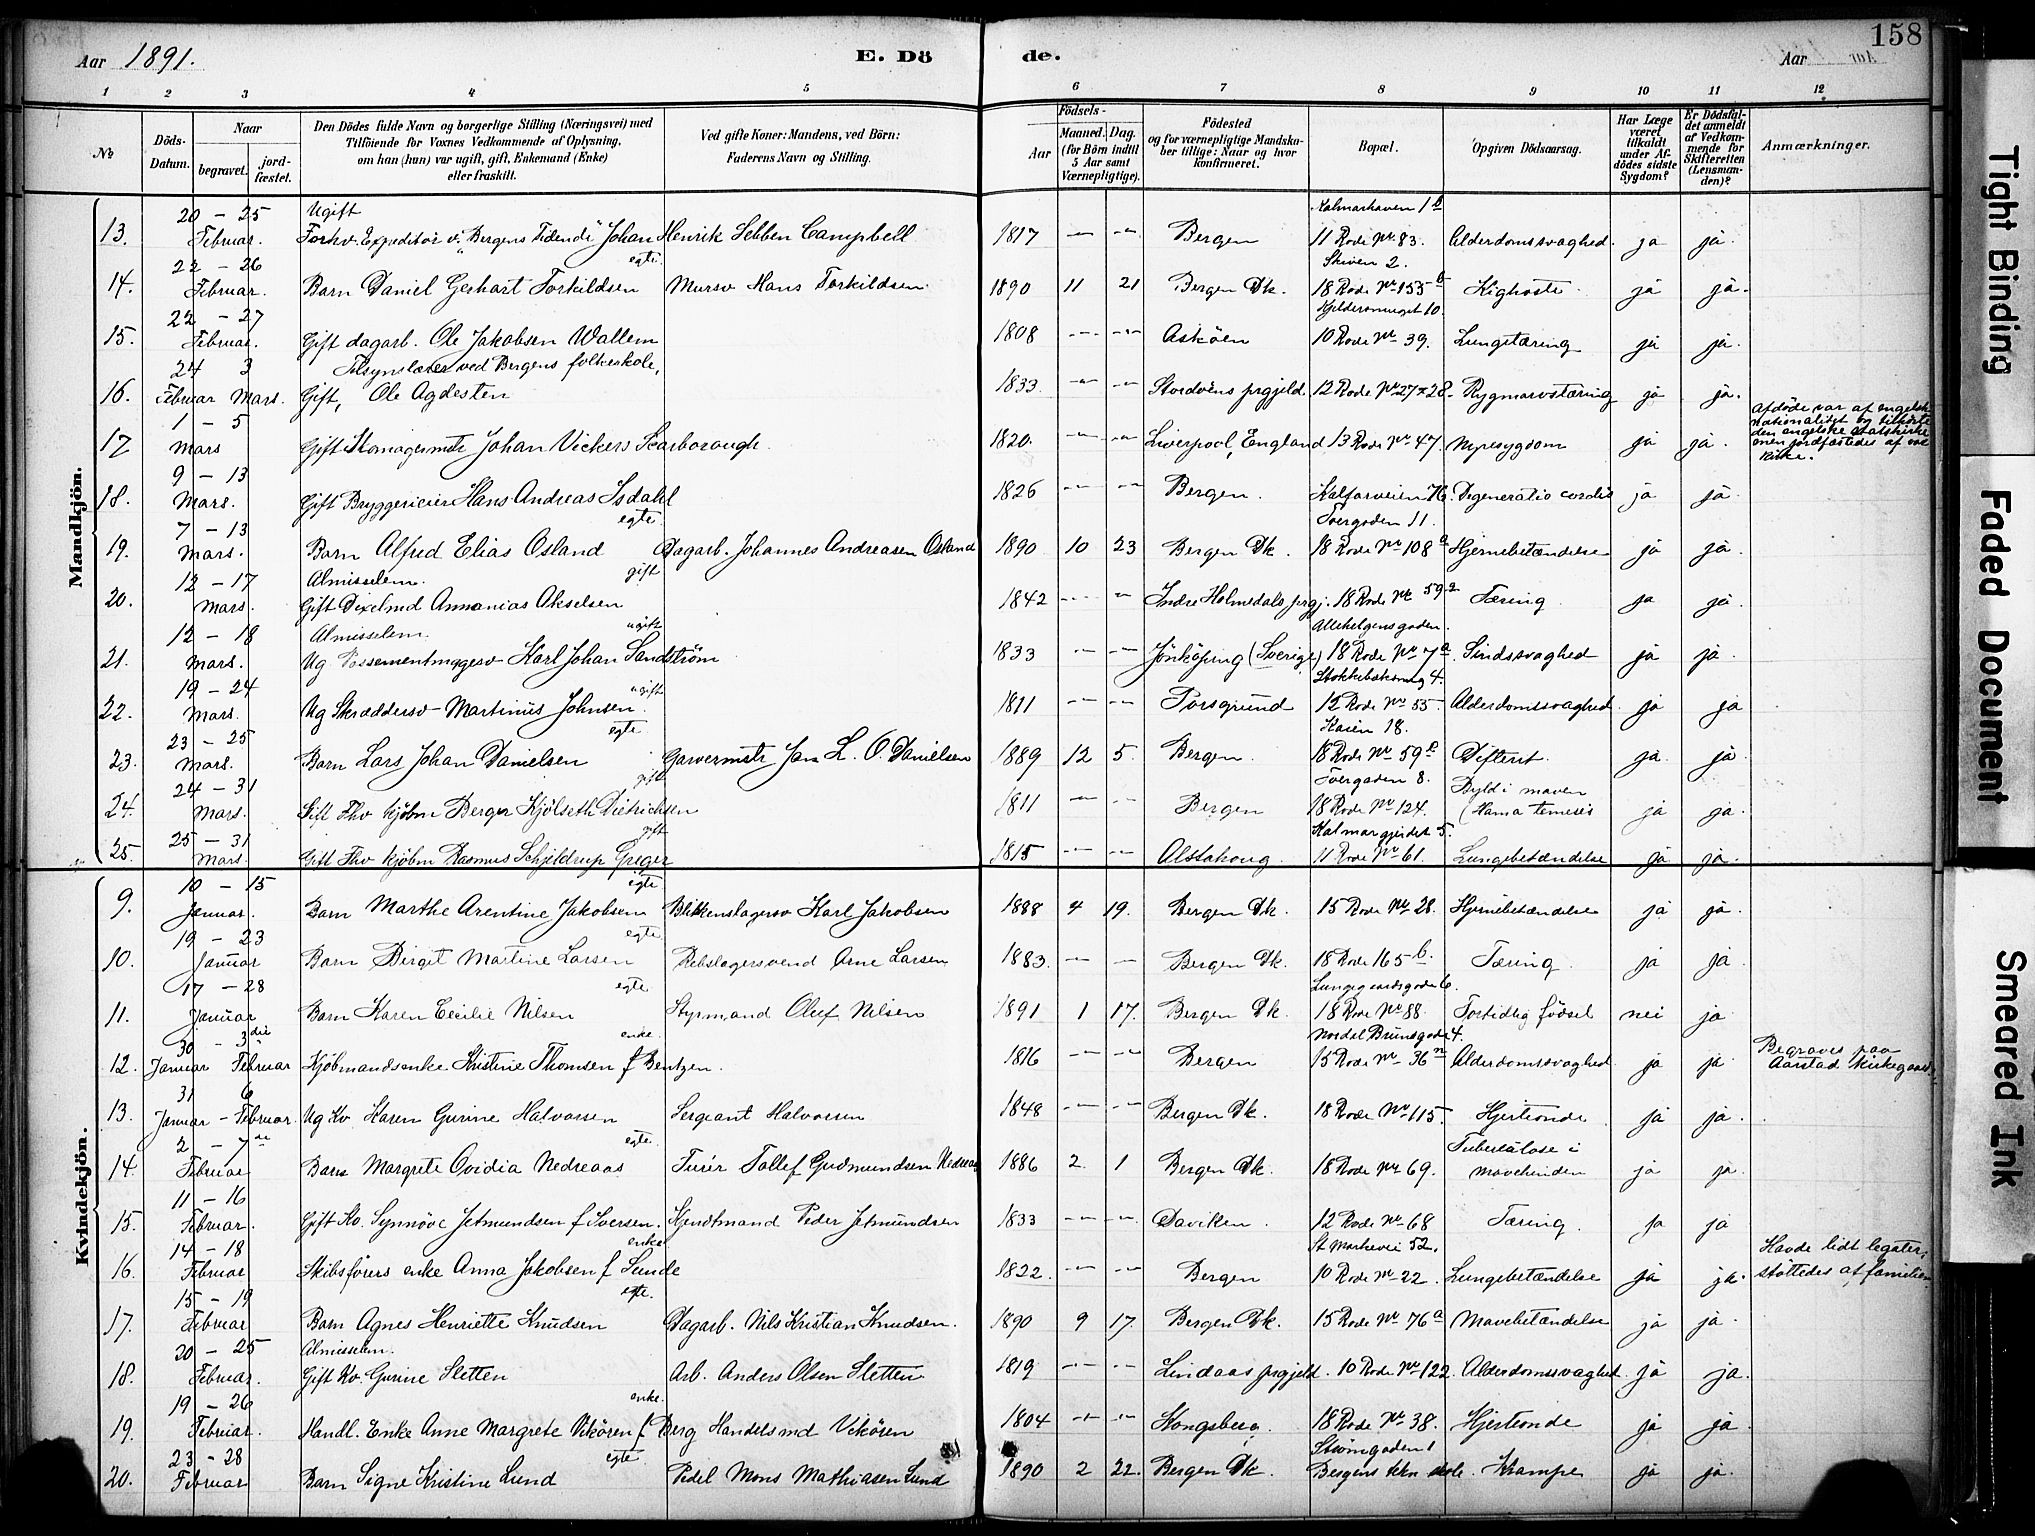 158
Aar 1891. E. Dö de. Aar
1 2 3 4 5 6 7 8 9 10 11 12
No
Döds-Datum.
Naar begravet. jordfæstet.
Den Dödes fulde Navn og borgerlige Stilling (Næringsvei) med Tilföiende for Voxnes Vedkommende af Oplysning, om han (hun) var ugift, gift, Enkemand (Enke) eller fraskilt.
Ved gifte Koner: Mandens, ved Börn: Faderens Navn og Stilling.
Födsels- Aar Maaned. Dag. (for Börn indtil 5 Aar samt Værnepligtige).
Födested og for værnepligtige Mandskaber tillige: Naar og hvor konfirmeret.
Bopæl.
Opgiven Dödsaarsag.
Har Læge været tilkaldt under Afdödes sidste Sygdom?
Er Dödsfaldet anmeldt af Vedkommende for Skifteretten (Lensmanden)?
Anmærkninger.
Mandkjön.
13. 20 – 25 Februar. Ugift Forhv. Expeditör v. "Bergens Tidende" Johan Henrik Sebben Campbell 1817 – – Bergen Kalmarhaven 1 b 11 Rode No 83. Alderdomssvaghed. ja ja.
14. 22 – 26 Februar. Barn Daniel Gerhart Torkildsen egte. Mursv Hans Torkildsen. 1890 11 21 Bergen Dk. Skiven 2. 18 Rode No 155 b Kighoste. ja ja.
15. 22 – 27 Februar. Gift dagarb. Ole Jakobsen Wallem 1808 – – Asköen Kjeldersmuget 10. 10 Rode No 39. Lungetæring ja ja.
16. 24 Februar 3 Mars. Tilsynslærer ved Bergens folkeskole, Gift, Ole Agdesten 1833 – – Stordöens prgjeld 12 Rode No 27 x 28. Rygmarvstæring ja ja.
17 1 – 5 Mars Gift Stomagermstr Johan Vickers Scarborough. 1820. – – Liverpool, England 13 Rode No 47. Nyresygdom ja ja. Afdöde var af engelsk nationalitet og tilhörte den engelske statskirke men jordfæstedes af vor kirke.
18. 9 – 13 Mars. Gift Bryggerieier Hans Andreas Isdahl 1826 – – Bergen. Kalfarveien 76. Degeneratio cordis ja ja.
19. 7 – 13 Mars. Barn Alfred Elias Osland egte. Dagarb. Johannes Andreasen Osland 1890 10 23 Bergen Dk. Tvergaden 11. 18 Rode No 108 a Hjernebetændelse ja ja.
20. 12 – 17 Mars. Almisselem. gift Gift Ananias Akselsen 1842 – – Indre Holmedals prgj. 18 Rode No 59 Tæring. ja ja.
21. 12 – 18 Mars. Almisselem. ugift Ug Possementmagersv Karl Johan Sandström 1833 – – Jönköping (Sverige) Allehelgensgaden. 18 Rode No 7 a Sindssvaghed ja ja.
22. 19 – 24 Mars. ugift Ug Skræddersv– Martinus Johnsen. 1811 – – Porsgrund 12 Rode No 55. Alderdomssvaghed. ja ja
23. 23 – 25 Mars. Barn Lars Johan Danielsen egte. Garvermstr Jan L. O. Danielsen 1889 12 5. Bergen. Kaien 18. 18 Rode No 59 Difterit. ja. ja.
24. 24 – 31 Mars. gift Gift Fhv kjöbm Berger Kjölseth Dietrichsen 1811 – – Bergen Tvergaden 8. 18 Rode No 124. Byld i maven ja ja.
25. 25 – 31 Mars. gift Gift Fhv kjöbm Rasmus Schjeldrup Greger 1815 – – Alstahoug. Kalmargjerdet 5. 11 Rode No 61. Lungebetændelse ja ja.
Kvindekjön.
9. 10 – 15 Januar. Barn Marthe Arentine Jakobsen egte Blikkenslagersv Karl Jakobsen 1888 4 19. Bergen Dk. 15 Rode No 28. Hjernebetændelse ja ja.
10. 19 – 23 Januar Barn Birgit Martine Larsen egte Rebslagersvend Arne Larsen 1883. – – Bergen Dk. 18 Rode 165 b. Tæring. ja ja.
11. 17 – 28 Januar Barn Karen Cecilie Nilsen egte Styrmand Oluf Nilsen 1891 1 17. Bergen Dk. Lungegaardsgade 6. 18 Rode No 88. Fortidlig födsel nei ja.
12. 30 Januar – 3die Februar Kjöbmandsenke Kristine Thomsen f Bentzen. enke. 1816 – – Bergen Nordal Brunsgade 4. 15 Rode No 36 Alderdomssvaghed. ja ja. Begraves paa Aarstad kirkegaard.
13. 31 Januar – 6 Februar. Ug Kv Karen Gurine Halvorsen Sergeant Halvorsen 1848 – – Bergen Dk. 18 Rode No 115. Hjerteonde. ja ja.
14. 2 – 7de Februar Barn Margrete Ovidia Nedreaas egte. Turer Tollef Gudmundsen Nedreaas 1886 2. 1 Bergen Dk. 18 Rode No 69. Tuberkulose i mavehinden ja ja.
15. 11 – 16 Februar. Gift Kv. Synnöve Jetmundsen f Iversen. Hyndtmand Peder Jetmundsen 1833 – – Daviken. 12 Rode No 68 Tæring. ja ja
16. 14 – 18 Februar enke Skibsförers enke Anna Jakobsen f Sunde 1822. – – Bergen St Markevei 52. 10 Rode No 22. Lungebetændelse ja ja. Havde lidt legater, stöttedes af familien
17. 15 – 19 Februar Barn Agnes Henriette Knudsen egte. Dagarb. Nils Kristian Knudsen. 1890 9 17. Bergen Dk. 15 Rode No 76 a Mavebetændelse ja ja.
18. 20 – 25 Februar. Almisselem. Gift Kv. Gurine Sletten Arb. Anders Olsen Sletten 1819 – – Lindaas prgjeld. 10 Rode No 122. Alderdomssvaghed. ja ja.
19. 19 – 26 Februar. enke. Handl. Enke Anne Margrete Vikören f Berg Handelsmd Vikören 1804 – – Kongsberg. 18 Rode No 38. Hjerteonde ja ja.
20. 23 – 28 Februar Barn Signe Kristine Lund egte. Pedel Mons Mathiasen Lund 1890 2 22. Bergen Dk. Strömgaden 1 Bergens tekn skole. Krampe ja ja.
Tight Binding
Faded Document
Smeared Ink